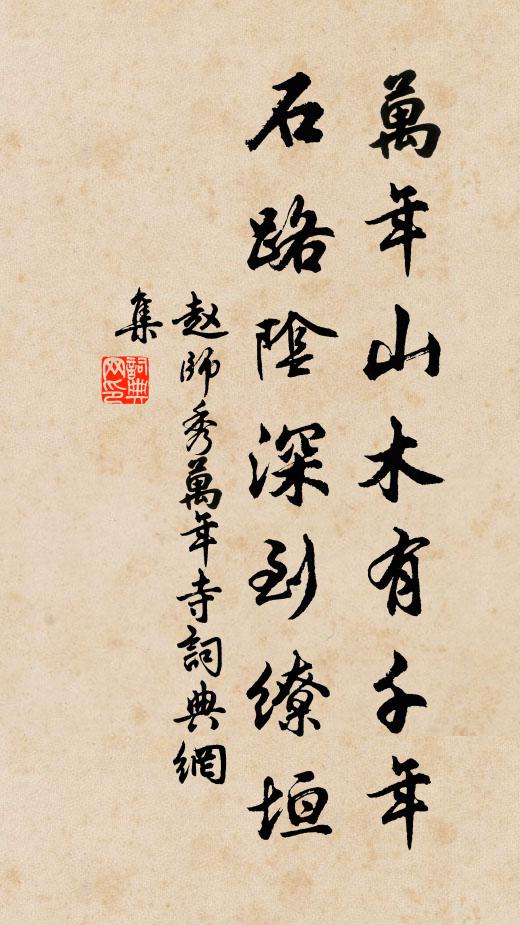 萬年山木有千年
石路陰深到繚垣
赵師秀萬年寺詞典網
集
詞典
网印